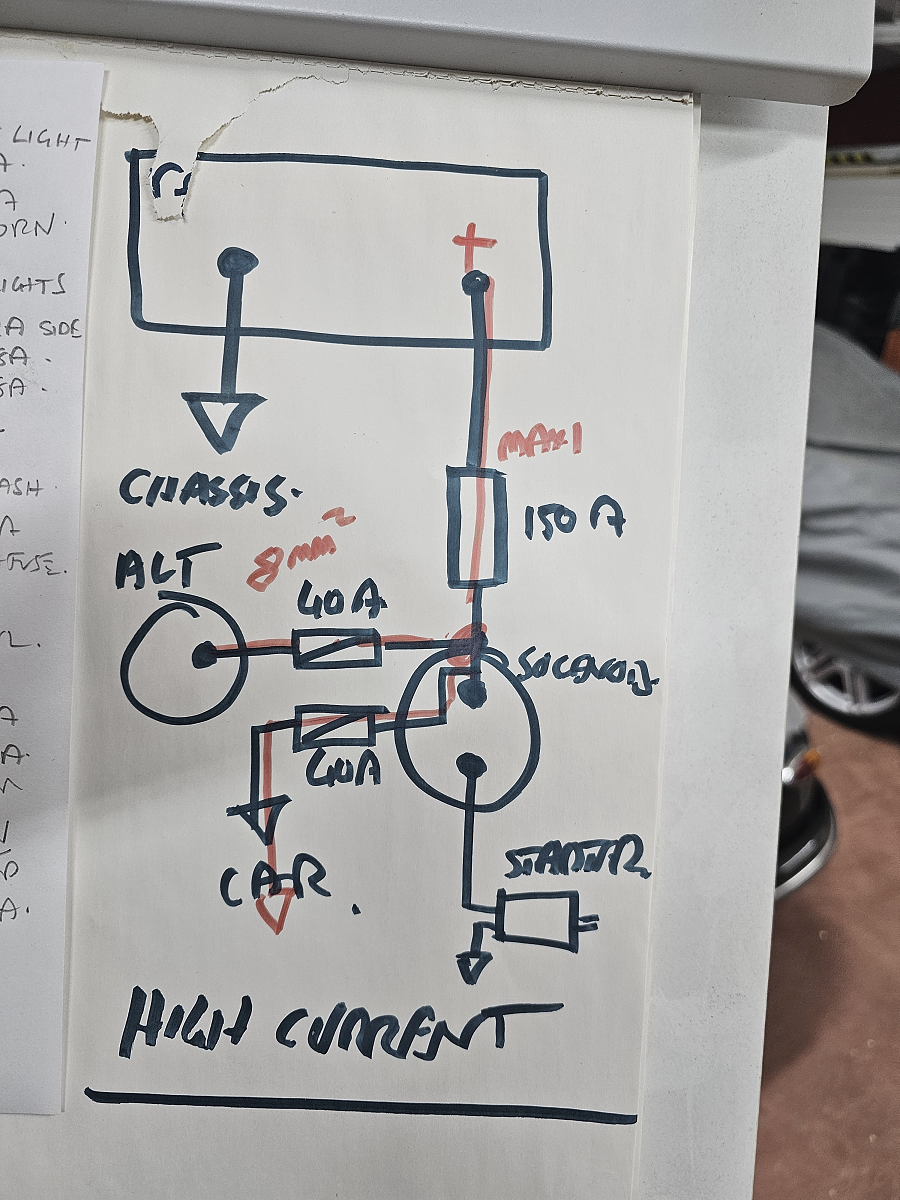 LIGHT
A.
A
ORN.
IGHTS
A SIDE
5A.
5A.
ASH.
A
FUSE.
L.
A
A.
A.
+
MAXI
150A
CHASSIS.
8mm²
ALT
40A
SOLENOID.
40A
CAR.
STARTER.
HIGH CURRENT